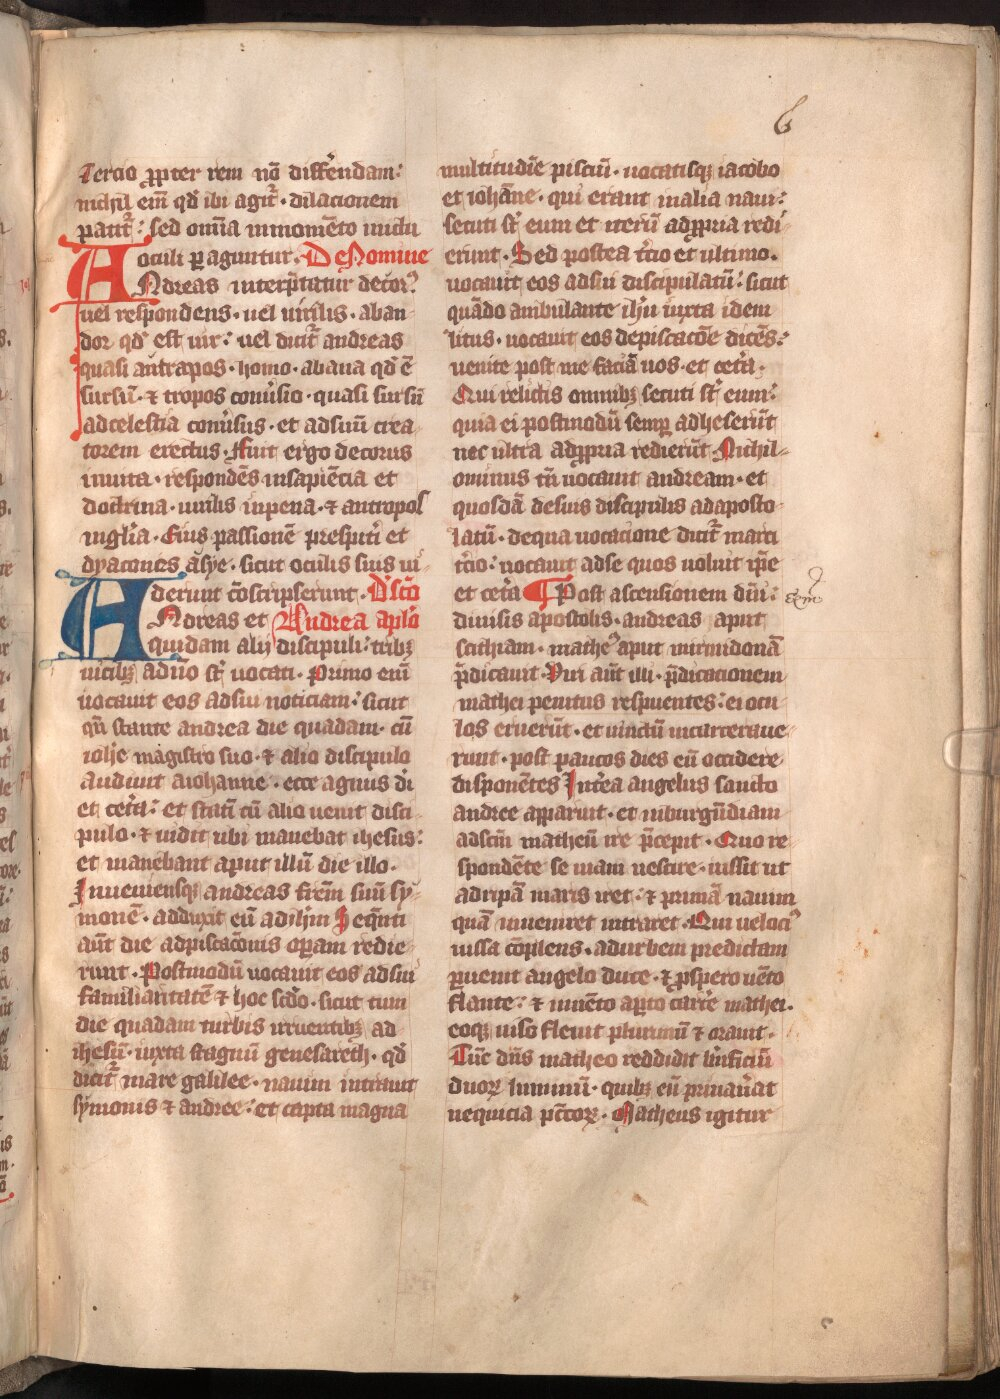 6
Tercio ꝓpter rem nō diffērdam:
nichil eīm qd̄ ibi agit᷑ · dilacionem
patit᷑: sed omīa inmomēto inictu
oculi ꝑaguntur. De Nomine
ANdreas interp̄tatur decor᷒
uel respondens · uel uirilis · aban-
dor qd̄ est uir: uel dicit᷑ andreas
quasi antrapos · homo · abana qd̄ ē
sursū · ⁊ tropos conūsio · quasi sursū
adcelestia conūsus · et adsuū crea-
torem erectus. Fuit ergo decorus
inuita · respondēs insapiēcia et
doctrina · uirilis inpena · ⁊ antropos
inglīa · Eius passionē presp̄iti et
dyacones āsye · sicut oculis suis ui-
derunt cōscripserunt. D' Scō
ANdreas et Andrea aplō
quidam alij discipuli: tribꝫ
uicibꝫ adn̄o st̄ uocati · Primo enī
uocauit eos adsui noticiam: sicut
qn̄ stante andrea die quadam · cū
ioh̄e magistro suo · ⁊ alio discipulo
audiuit aiohanne · ecce agnus dī
et cet̄a: et statī cū alio uenit disci-
pulo · ⁊ uidit ubi manebat ihesus:
et manebant aput illū die illo.
Inueniensqꝫ andreas frēm suū sy-
monē · adduxit eū adih̄m Seqn̄ti
aūt die adpiscacōnis oꝑam redie-
runt · Postmodū uocauit eos adsui
familiaritatē ⁊ hoc scd̄o · sicut cum
die quadam turbis irruentibꝫ ad
ihesū · iuxta stagnū genesareth · qd̄
dicit᷑ mare galilee · nauim intrauit
symonis ⁊ andree: et capta magna
multitudīe pisciū · uocatisqꝫ iacobo
et iohāne · qui erant inalia naui:
secuti st̄ eum et iterū adꝓpria redi-
erunt · Sed postea t̄cio et ultimo.
uocauit eos adsui discipulatū: sicut
quādo ambulante ih̄u iuxta idem
litus · uocauit eos depiscacōe dicēs:
uenite post me faciā uos · et cet̄a ·
Qui relictis omnibꝫ secuti st̄ eum:
quia ei postmodū semꝑ adheserūt
nec ultra adꝓpria redierūt Nichil-
ominus tn̄ uocauit andream · et
quosdā desuis discipulis adaposto-
latū · dequa uocacione dicit᷑ marci
t̄cio: uocauit adse quos uoluit ip̄e
et cet̄a ¶ Post ascensionem dn̄i:
diuisis apostolis · andreas aput
scithiam · mathe᷒ aput mirmidonā
p̄dicauit · Viri aūt illi · p̄dicacionem
mathei penitus respuentes: ei ocu-
los eruerūt · et uinctū incarceraue-
runt · post paucos dies eū occidere
disponētes Int̄ea angelus sancto
andree apparuit · et inburgūdiam
adscm̄ matheū ire p̄cepit · Quo re-
spondēte se uiam nescire · iussit ut
adripā maris iret: ⁊ primā nauim
quā inueniret intraret · Qui uelocit᷒
iussa cōplens · adurbem predictam
ꝑuenit angelo duce · ⁊ ꝓspero uēto
flante: ⁊ inuēto aꝑto carc̄e mathei.
eoqꝫ uiso fleuit plurimū ⁊ orauit ·
Tūc dn̄s matheo reddidit bn̄ficiū
duoꝝ luminū · quibꝫ eū priuaūat
nequicia pc̄toꝝ · Matheus igitur